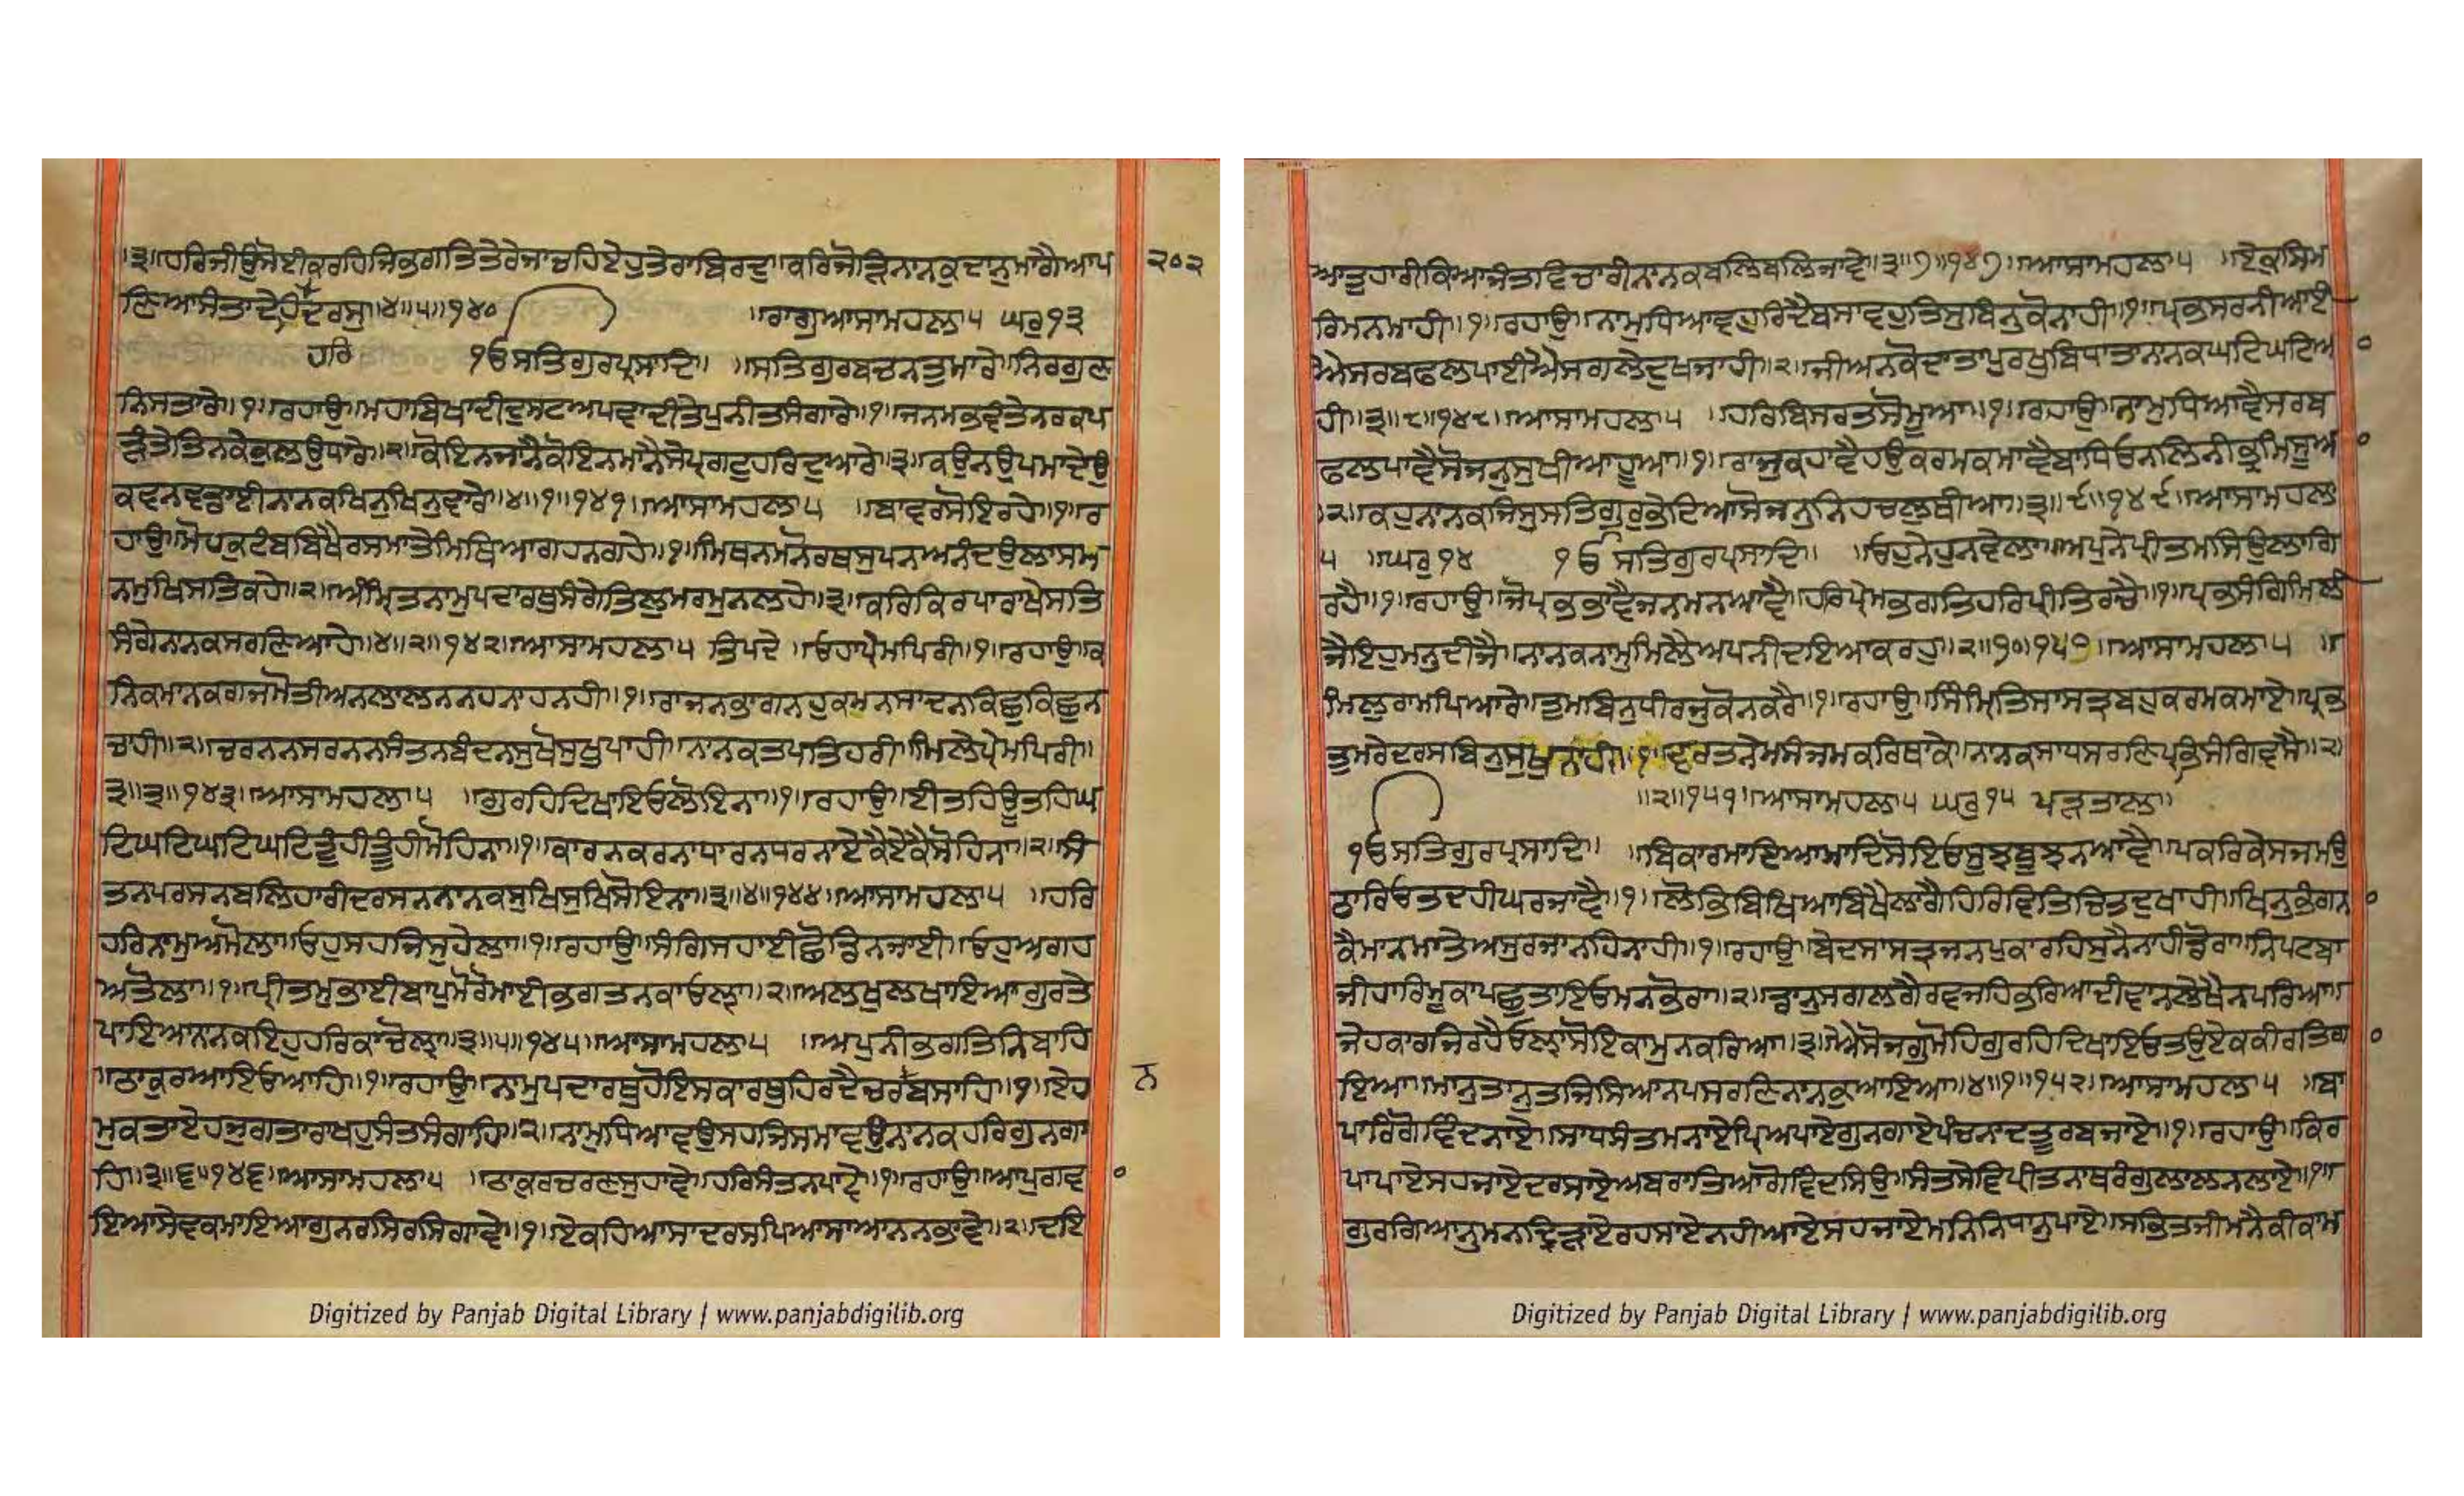 ॥੩॥ਹਰਿਜੀਉਸੋਈਕਰਹਿਜਿਭਗਤਿਤੇਰੇਜਾਚਹਿਏਹੁਤੇਰਾਬਿਰਦੁ॥ਕਰਿਜੋੜਿਨਾਨਕਦਾਨੁਮਾਗੈਆਪ
੨੦੨
ਣਿਆਸੰਤਾਦੇਹਿਦਰਸੁ॥੪॥੫॥੧੪੦
ਹਰਿ
॥ਰਾਗੁਆਸਾਮਹਲਾ੫ ਘਰੁ੧੩
ੴਸਤਿਗੁਰਪ੍ਰਸਾਦਿ॥ ॥ਸਤਿਗੁਰਬਚਨਤੁਮਾਰੇ॥ਨਿਰਗੁਣ
ਨਿਸਤਾਰੇ॥੧॥ਰਹਾਉ॥ਮਹਾਬਿਖਾਦੀਦੁਸਟਅਪਵਾਦੀਤੇਪੁਨੀਤਸੰਗਾਰੇ॥੧॥ਜਨਮਭਵੰਤੇਨਰਕਪ
ੜੰਤੇਤਿਨਕੇਕੁਲਉਧਾਰੇ॥੨॥ਕੋਇਨਜਾਨੈਕੋਇਨਮਾਨੈਸੇਪ੍ਰਗਟੁਹਰਿਦੁਆਰੇ॥੩॥ਕਉਨਉਪਮਾਦੇਉ
ਕਵਨਵਡਾਈਨਾਨਕਖਿਨੁਖਿਨੁਵਾਰੇ॥੪॥੧॥੧੪੧॥ਆਸਾਮਹਲਾ੫ ॥ਬਾਵਰਸੋਇਰਹੇ॥੧॥ਰ
ਹਾਉ॥ਮੋਹਕੁਟੰਬਬਿਖੈਰਸਮਾਤੇਮਿਥਿਆਗਹਨਗਹੇ॥੧॥ਮਿਥਨਮਨੋਰਥਸੁਪਨਆਨੰਦਉਲਾਸਮ
ਨਮੁਖਿਸਤਿਕਹੇ॥੨॥ਅੰਮ੍ਰਿਤਨਾਮੁਪਦਾਰਥੁਸੰਗੇਤਿਲੁਮਰਮੁਨਲਹੇ॥੩॥ਕਰਿਕਿਰਪਾਰਾਖੇਸਤਿ
ਸੰਗੇਨਾਨਕਸਰਣਿਆਹੇ॥੪॥੨॥੧੪੨॥ਆਸਾਮਹਲਾ੫ ਤਿਪਦੇ ॥ਓਹਾਪ੍ਰੇਮਪਿਰੀ॥੧॥ਰਹਾਉ॥ਕ
ਨਿਕਮਾਨਕਗਜਮੋਤੀਅਨਲਾਲਨਨਹਨਾਹਨਹੀ॥੧॥ਰਾਜਨਭਾਗਨਹੁਕਮਨਸਾਦਨਕਿਛੁਕਿਛੁਨ
ਚਾਹੀ॥੨॥ਚਰਨਨਸਰਨਨਸੰਤਨਬੰਦਨਸੁਖੋਸੁਖੁਪਾਹੀ॥ਨਾਨਕਤਪਤਿਹਰੀ॥ਮਿਲੇਪ੍ਰੇਮਪਿਰੀ॥
੩॥੩॥੧੪੩॥ਆਸਾਮਹਲਾ੫ ॥ਗੁਰਹਿਦਿਖਾਇਓਲੋਇਨਾ॥੧॥ਰਹਾਉ॥ਈਤਹਿਊਤਹਿਘ
ਟਿਘਟਿਘਟਿਘਟਿਤੂੰਹੀਤੂੰਹੀਮੋਹਿਨਾ॥੧॥ਕਾਰਨਕਰਨਾਧਾਰਨਧਰਨਾਏਕੈਏਕੈਸੋਹਿਨਾ॥੨॥ਸੰ
ਤਨਪਰਸਨਬਲਿਹਾਰੀਦਰਸਨਨਾਨਕਸੁਖਿਸੁਖਿਸੋਇਨਾ॥੩॥੪॥੧੪੪॥ਆਸਾਮਹਲਾ੫ ॥ਹਰਿ
ਹਰਿਨਾਮੁਅਮੋਲਾ॥ਓਹੁਸਹਜਿਸੁਹੇਲਾ॥੧॥ਰਹਾਉ॥ਸੰਗਿਸਹਾਈਛੋਡਿਨਜਾਈ॥ਓਹੁਅਗਹ
ਅਤੋਲਾ॥੧॥ਪ੍ਰੀਤਮੁਭਾਈਬਾਪੁਮੋਰੋਮਾਈਭਗਤਨਕਾਓਲ੍ਹਾ॥੨॥ਅਲਖੁਲਖਾਇਆਗੁਰਤੇ
ਪਾਇਆਨਾਨਕਇਹੁਹਰਿਕਾਚੋਲ੍ਹਾ॥੩॥੫॥੧੪੫॥ਆਸਾਮਹਲਾ੫ ॥ਅਪੁਨੀਭਗਤਿਨਿਬਾਹਿ
॥ਠਾਕੁਰਆਇਓਆਹਿ॥੧॥ਰਹਾਉ॥ਨਾਮੁਪਦਾਰਥੁਹੋਇਸਕਾਰਥੁਹਿਰਦੈਚਰਬਸਾਹਿ॥੧॥ਏਹ
ਨ
ਮੁਕਤਾਏਹਜੁਗਤਾਰਾਖਹੁਸੰਤਸੰਗਾਹਿ॥੨॥ਨਾਮੁਧਿਆਵਉਸਹਜਿਸਮਾਵਉਨਾਨਕਹਰਿਗੁਨਗਾ
ਹਿ॥੩॥੬॥੧੪੬॥ਆਸਾਮਹਲਾ੫ ॥ਠਾਕੁਰਚਰਣਸੁਹਾਵੇ॥ਹਰਿਸੰਤਨਪਾਵੇ॥੧॥ਰਹਾਉ॥ਆਪੁਗਵ
ਇਆਸੇਵਕਮਾਇਆਗੁਨਰਸਿਰਸਿਗਾਵੇ॥੧॥ਏਕਹਿਆਸਾਦਰਸਪਿਆਸਾਆਨਨਭਾਵੇ॥੨॥ਦਇ
Digitized by Panjab Digital Library | www.panjabdigilib.org
ਆਤੁਹਾਰੀਕਿਆਜੰਤਵਿਚਾਰੀਨਾਨਕਬਲਿਬਲਿਜਾਵੇ॥੩॥੭॥੧੪੭॥ਆਸਾਮਹਲਾ੫ ॥ਏਕੁਸਿਮ
ਰਿਮਨਮਾਹੀ॥੧॥ਰਹਾਉ॥ਨਾਮੁਧਿਆਵਹੁਰਿਦੈਬਸਾਵਹੁਤਿਸੁਬਿਨੁਕੋਨਾਹੀ॥੧॥ਪ੍ਰਭਸਰਨੀਆਈ
ਐਸਰਬਫਲਪਾਈਐਸਗਲੇਦੁਖਜਾਹੀ॥੨॥ਜੀਅਨਕੋਦਾਤਾਪੁਰਖੁਬਿਧਾਤਾਨਾਨਕਘਟਿਘਟਿਆ
ਹੀ॥੩॥੮॥੧੪੮॥ਆਸਾਮਹਲਾ੫ ॥ਹਰਿਬਿਸਰਤਸੋਮੂਆ॥੧॥ਰਹਾਉ॥ਨਾਮੁਧਿਆਵੈਸਰਬ
ਫਲਪਾਵੈਸੋਜਨੁਸੁਖੀਆਹੂਆ॥੧॥ਰਾਜੁਕਹਾਵੈਹਉਕਰਮਕਮਾਵੈਬਾਧਿਓਨਲਿਨੀਭ੍ਰਮਿਸੂਆ
॥੨॥ਕਹੁਨਾਨਕਜਿਸੁਸਤਿਗੁਰੁਭੇਟਿਆਸੋਜਨੁਨਿਹਚਲੁਥੀਆ॥੩॥੯॥੧੪੯॥ਆਸਾਮਹਲਾ
੫ ॥ਘਰੁ੧੪ ੴਸਤਿਗੁਰਪ੍ਰਸਾਦਿ॥ ॥ਓਹੁਨੇਹੁਨਵੇਲਾ॥ਅਪੁਨੇਪ੍ਰੀਤਮਸਿਉਲਾਗਿ
ਰਹੈ॥੧॥ਰਹਾਉ॥ਜੋਪ੍ਰਭਭਾਵੈਜਨਮਨਆਵੈ॥ਹਰਿਪ੍ਰੇਮਭਗਤਿਹਰਿਪ੍ਰੀਤਿਰਚੈ॥੧॥ਪ੍ਰਭਸੰਗਿਮਿਲੀ
ਜੈਇਹੁਮਨੁਦੀਜੈ॥ਨਾਨਕਨਾਮੁਮਿਲੈਅਪਨੀਦਇਆਕਰਹੁ॥੨॥੧੦॥੧੫੦॥ਆਸਾਮਹਲਾ੫ ॥
ਮਿਲੁਰਾਮਪਿਆਰੇ॥ਤੁਮਬਿਨੁਧੀਰਜੁਕੋਨਕਰੈ॥੧॥ਰਹਾਉ॥ਸਿੰਮ੍ਰਿਤਿਸਾਸਤ੍ਰਬਹੁਕਰਮਕਮਾਏ॥ਪ੍ਰਭ
ਤੁਮਰੇਦਰਸਬਿਨੁਸੁਖੁਨਾਹੀ॥੧॥ਵਰਤਨੇਮਸੰਜਮਕਰਿਥਾਕੇ॥ਨਾਨਕਸਾਧਸਰਣਿਪ੍ਰਭਸੰਗਿਵਸੈ॥੨॥
॥੨॥੧੫੧॥ਆਸਾਮਹਲਾ੫ ਘਰੁ੧੫ ਪੜਤਾਲਾ
ੴਸਤਿਗੁਰਪ੍ਰਸਾਦਿ॥ ॥ਬਿਕਾਰਮਾਇਆਮਾਦਿਸੋਇਓਸੂਝਬੂਝਨਆਵੈ॥ਪਕਰਿਕੇਸਜਮਉ
ਠਾਰਿਓਤਦਹੀਘਰਜਾਵੈ॥੧॥ਲੋਭਿਬਿਖਿਆਬਿਖੈਲਾਗੇਹਿਰਿਵਿਤਿਚਿਤਦੁਖਾਹੀ॥ਖਿਨੁਭੰਗਨ
ਕੈਮਾਨਮਾਤੇਅਸੁਰਜਾਨਹਿਨਾਹੀ॥੧॥ਰਹਾਉ॥ਬੇਦਸਾਸਤ੍ਰਜਨਪੁਕਾਰਹਿਸੁਨੈਨਾਹੀਡੋਰਾ॥ਨਿਪਟਬਾ
ਜੀਹਾਰਿਮੂਕਾਪਛੁਤਾਇਓਮਨਭੋਰਾ॥੨॥ਡਾਨੁਸਗਲਗੈਰਵਜਹਿਭਰਿਆਦੀਵਾਨਲੇਖੈਨਪਰਿਆ॥
ਜੇਹਕਾਰਜਿਰਹੈਓਲ੍ਹਾਸੋਇਕਾਮੁਨਕਰਿਆ॥੩॥ਐਸੋਜਗੁਮੋਹਿਗੁਰਹਿਦਿਖਾਇਓਤਉਏਕਕੀਰਤਿਗਾ
ਇਆ॥ਮਾਨੁਤਾਨੁਤਜਿਸਿਆਨਪਸਰਣਿਨਾਨਕੁਆਇਆ॥੪॥੧॥੧੫੨॥ਆਸਾਮਹਲਾ੫ ॥ਬਾ
ਪਾਰਿਗੋਵਿੰਦਨਾਏ॥ਸਾਧਸੰਤਮਨਾਏਪ੍ਰਿਅਪਾਏਗੁਨਗਾਏਪੰਚਨਾਦਤੂਰਬਜਾਏ॥੧॥ਰਹਾਉ॥ਕਿਰ
ਪਾਪਾਏਸਹਜਾਏਦਰਸਾਏਅਬਰਾਤਿਆਗੋਵਿੰਦਸਿਉ॥ਸੰਤਸੇਵਿਪ੍ਰੀਤਨਾਥਰੰਗੁਲਾਲਨਲਾਏ॥੧॥
ਗੁਰਗਿਆਨੁਮਨਦ੍ਰਿੜਾਏਰਹਸਾਏਨਹੀਆਏਸਹਜਾਏਮਨਿਨਿਧਾਨੁਪਾਏ॥ਸਭਤਜੀਮਨੈਕੀਕਾਮ
Digitized by Panjab Digital Library | www.panjabdigilib.org